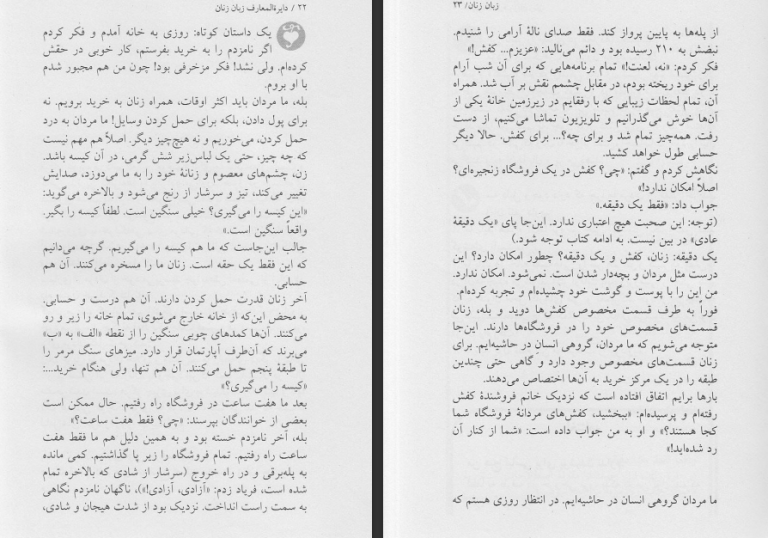 ۲۲ / دایرةالمعارف زبان زنان
یک داستان کوتاه: روزی به خانه آمدم و فکر کردم
اگر نامزدم را به خرید بفرستم، کار خوبی در حقش
کرده‌ام. ولی نشد! فکر مزخرفی بود! چون من هم مجبور شدم
با او بروم.
بله، ما مردان باید اکثر اوقات، همراه زنان به خرید برویم. نه
برای پول دادن، بلکه برای حمل کردن وسایل! ما مردان به درد
حمل کردن، می‌خوریم و نه هیچ‌چیز دیگر. اصلاً هم مهم نیست
که چه چیز، حتی یک لباس‌زیر شش گرمی، در آن کیسه باشد.
زن، چشم‌های معصوم و زنانهٔ خود را به ما می‌دوزد، صدایش
تغییر می‌کند، تیز و سرشار از رنج می‌شود و بالاخره می‌گوید:
«این کیسه را می‌گیری؟ خیلی سنگین است. لطفاً کیسه را بگیر.
واقعاً سنگین است.»
جالب این‌جاست که ما هم کیسه را می‌گیریم. گرچه می‌دانیم
که این فقط یک حقه است. زنان ما را مسخره می‌کنند. آن هم
حسابی.
آخر زنان قدرت حمل کردن دارند. آن هم درست و حسابی.
به محض این‌که از خانه خارج می‌شوی، تمام خانه را زیر و رو
می‌کنند. آن‌ها کمدهای چوبی سنگین را از نقطه «الف» به «ب»
می‌برند که آن‌طرف آپارتمان قرار دارد. میزهای سنگ مرمر را
تا طبقهٔ پنجم حمل می‌کنند. آن هم تنها، ولی هنگام خرید...:
«کیسه را می‌گیری؟»
بعد ما هفت ساعت در فروشگاه راه رفتیم. حال ممکن است
بعضی از خوانندگان بپرسند: «چی؟ فقط هفت ساعت؟»
بله، آخر نامزدم خسته بود و به همین دلیل هم ما فقط هفت
ساعت راه رفتیم. تمام فروشگاه را زیر پا گذاشتیم. کمی مانده
به پله‌برقی و در راه خروج (سرشار از شادی که بالاخره تمام
شده است، فریاد زدم: «آزادی، آزادی!»)، ناگهان نامزدم نگاهی
به سمت راست انداخت. نزدیک بود از شدت هیجان و شادی،
زبان زنان/ ۲۳
از پله‌ها به پایین پرواز کند. فقط صدای نالهٔ آرامی را شنیدم.
نبضش به ۲۱۰ رسیده بود و دائم می‌نالید: «عزیزم... کفش!»
فکر کردم: «نه، لعنت!» تمام برنامه‌هایی که برای آن شب آرام
برای خود ریخته بودم، در مقابل چشمم نقش بر آب شد. همراه
آن، تمام لحظات زیبایی که با رفقایم در زیرزمین خانهٔ یکی از
آن‌ها خوش می‌گذرانیم و تلویزیون تماشا می‌کنیم، از دست
رفت. همه‌چیز تمام شد و برای چه؟... برای کفش. حالا دیگر
حسابی طول خواهد کشید.
نگاهش کردم و گفتم: «چی؟ کفش در یک فروشگاه زنجیره‌ای؟
اصلاً امکان ندارد!»
جواب داد: «فقط یک دقیقه.»
(توجه: این صحبت هیچ اعتباری ندارد. این‌جا پای «یک دقیقهٔ
عادی» در بین نیست. به ادامه کتاب توجه شود.)
یک دقیقه: زنان، کفش و یک دقیقه؟ چطور امکان دارد؟ این
درست مثل مردان و بچه‌دار شدن است. نمی‌شود. امکان ندارد.
من این را با پوست و گوشت خود چشیده‌ام و تجربه کرده‌ام.
فوراً به طرف قسمت مخصوص کفش‌ها دوید و بله، زنان
قسمت‌های مخصوص خود را در فروشگاه‌ها دارند. این‌جا
متوجه می‌شویم که ما مردان، گروهی انسانِ در حاشیه‌ایم. برای
زنان قسمت‌های مخصوص وجود دارد و گاهی حتی چندین
طبقه را در یک مرکز خرید به آن‌ها اختصاص می‌دهند.
بارها برایم اتفاق افتاده است که نزدیک خانم فروشندهٔ کفش
رفته‌ام و پرسیده‌ام: «ببخشید، کفش‌های مردانهٔ فروشگاه شما
کجا هستند؟» و او به من جواب داده است: «شما از کنار آن
رد شده‌اید!»
ما مردان گروهی انسان در حاشیه‌ایم. در انتظار روزی هستم که